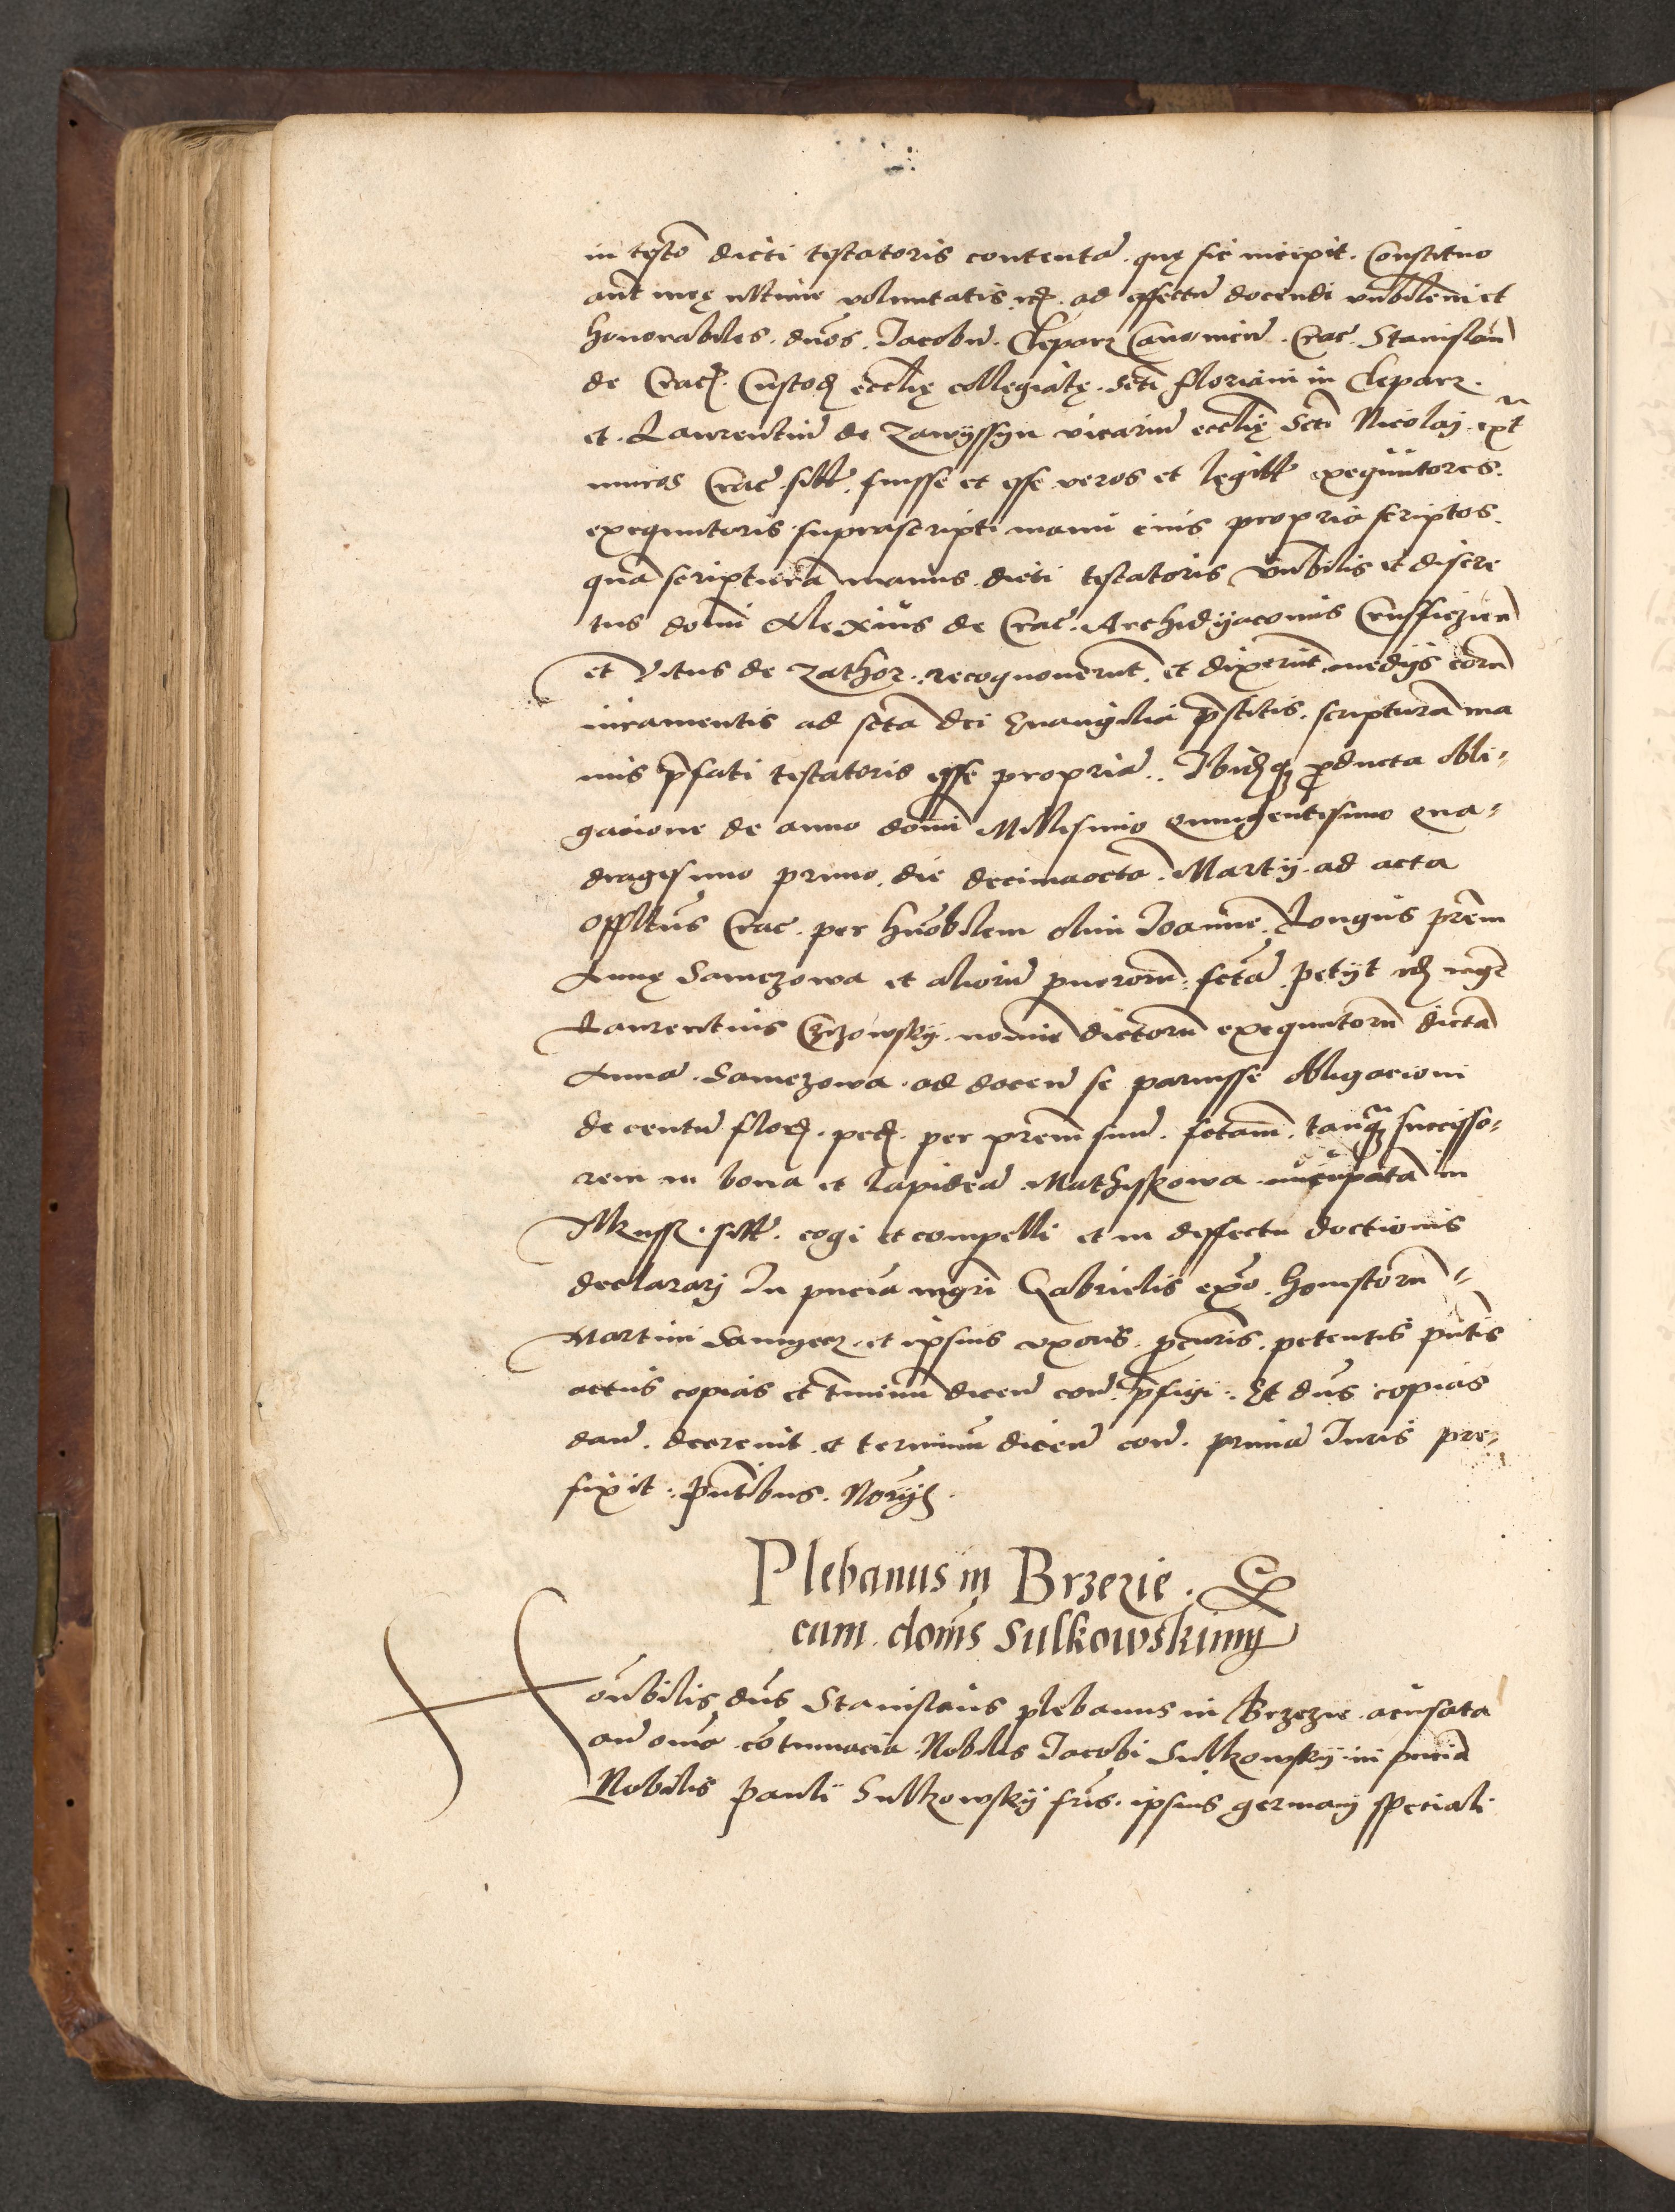 in testo dicti testatoris contenta. quę sic incipit. Constituo
aut meę ultime voluntatis etc. ad effectu docendi vnbilem et
honorabiles. dnos. Jacobu. Cleparz Canonicu. Crac. Stanislau
de Crac. Custod ecclię collegiatę. scti floriani in Cleparz.
et. Laurentiu de Zawyssyn vicariu ecclię Scti Nicolaj ext
muros Crac. silr. fuisse et esse veros et legitt exequutores.
exequutoris suprascripti manu eius propria scriptos.
qua scriptura manus dicti testatoris vnbilis et discre
tus domi Alexius de Crac. Archidyaconus Crusficzien
et Vitus de Zathor. recognouerut. et dixerut medijs eoru
iuramentis ad scta dei Euangelia pstitis. scriptura ma
nus pfati testatoris esse propria. Ibidq producta obli-
gacione de anno domi Millesimo Quingentesimo qua-
dragesimo primo. die decimaocta. Martij. ad acta
offitus Crac. per honobilem olim Joanne. Longus prem
Annę Samczowa et alioru puerorum: fcta. petijt idem mgr
Laurentius Czczowsky. nomine dictoru exequutoru dicta
Anna. Samczowa. ad docen se paruisse obligacioni
de centu flor. pec. per prem suu. fctam. tanq successo-
rem in bona et lapidea Mathiskowa nucupata in
Ilkussz. silr. cogi et compelli et in deffectu doctionis
declararj In pncia mgri Gabrielis exo. honestoru-
Martini Samyecz. et ipsius vxoris. pcuris. petentis pntis
actus copias et tminu dicen con. pfigi. Et dns copias
dan. decreuit. et terminu dicen con. prima Juris pre-
fixit. pntibus. Noryc.
Plebanus in Brzezie.
cum. domis Sulkowskimy
Honbilis dns Stanislaus plebanus in Brzezie. accusata
contumacia Nobilis Jacobi Sulkowsky. in pncia
Nobilis Pauli Sulkowsky fris. ipsius germanj speciali